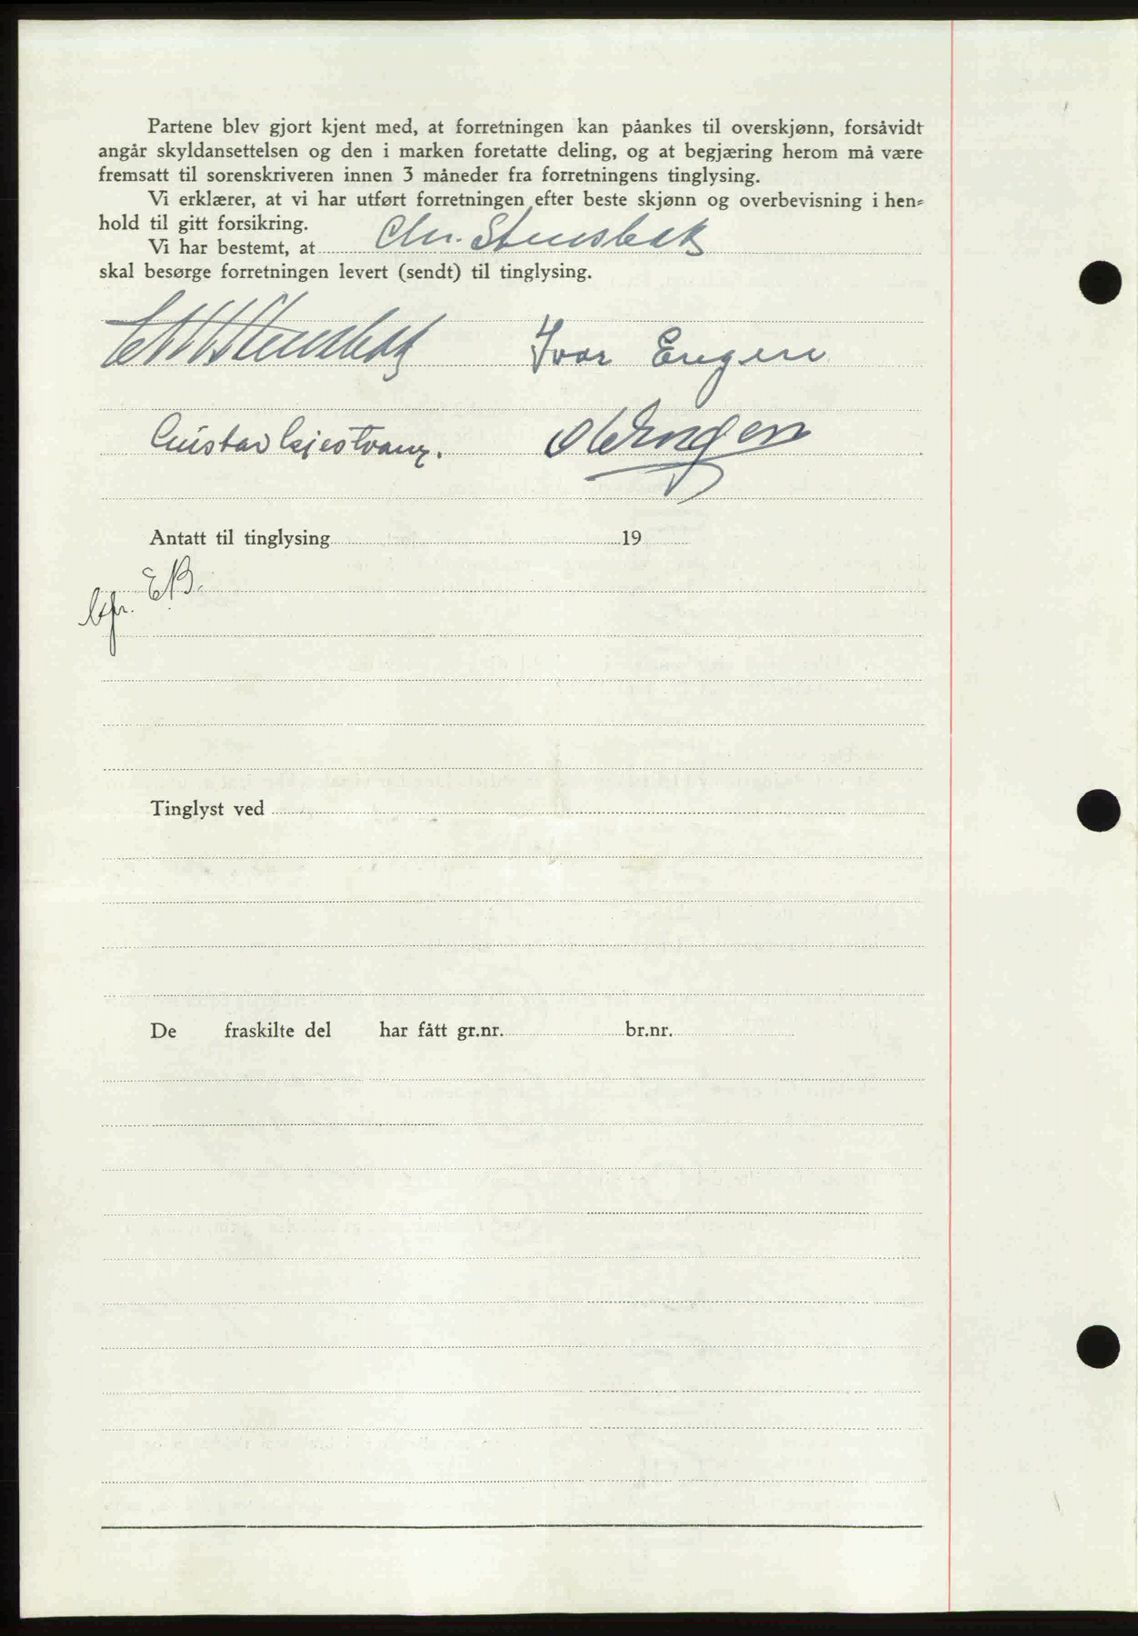 Partene blev gjort kjent med, at forretningen kan påankes til overskjønn, forsåvidt
angår skyldansettelsen og den i marken foretatte deling, og at begjæring herom må være
fremsatt til sorenskriveren innen 3 måneder fra forretningens tinglysing.
Vi erklærer, at vi har utført forretningen efter beste skjønn og overbevisning i hen-
hold til gitt forsikring.
Vi har bestemt, at Chr. Stensbak
skal besørge forretningen levert (sendt) til tinglysing.
Ivar Engen
Gustav Gjestvang.
Antatt til tinglysing 19
EB.
Tinglyst ved
De fraskilte del har fått gr.nr. br.nr.